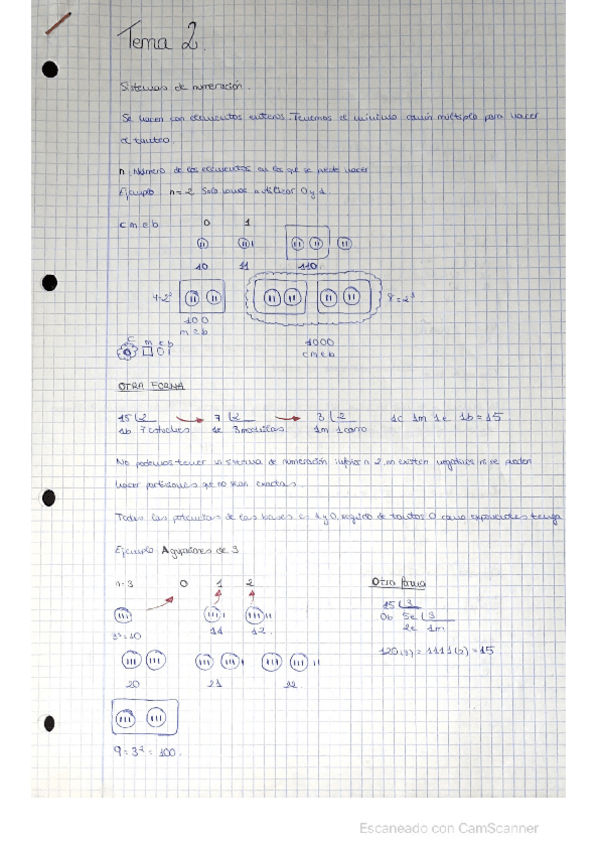 Tema 2.
Sistemas de numeración.
Se hacen con elementos enteros. Tenemos el mínimo común múltiplo para hacer
el tanteo.
n: Número de los elementos en los que se puede hacer
Ejemplo n=2 Solo vamos a utilizar 0 y 1
c m e b 0 1
10 11 110
4=2² 8=2³
100 1000
m e b c m e b
c m e b
OTRA FORMA
15 2 7 2 3 2 1c 1m 1e 1b = 15
1b 7 estuches 1e 3 mochilas 1m 1 carro
No podemos tener un sistema de numeración inferior a 2, no existen negativos ni se pueden
hacer particiones que no sean exactas.
Todas las potencias de las bases es 1 y 0, seguido de tantos 0 como exponentes tenga
Ejemplo: Agrupaciones de 3
n=3 0 1 2 Otra forma
15 3
0b 5e 3
2e 1m
3¹=10 11 12
120(3) = 1111(2) = 15
20 21 22
9=3²=100.
Escaneado con CamScanner